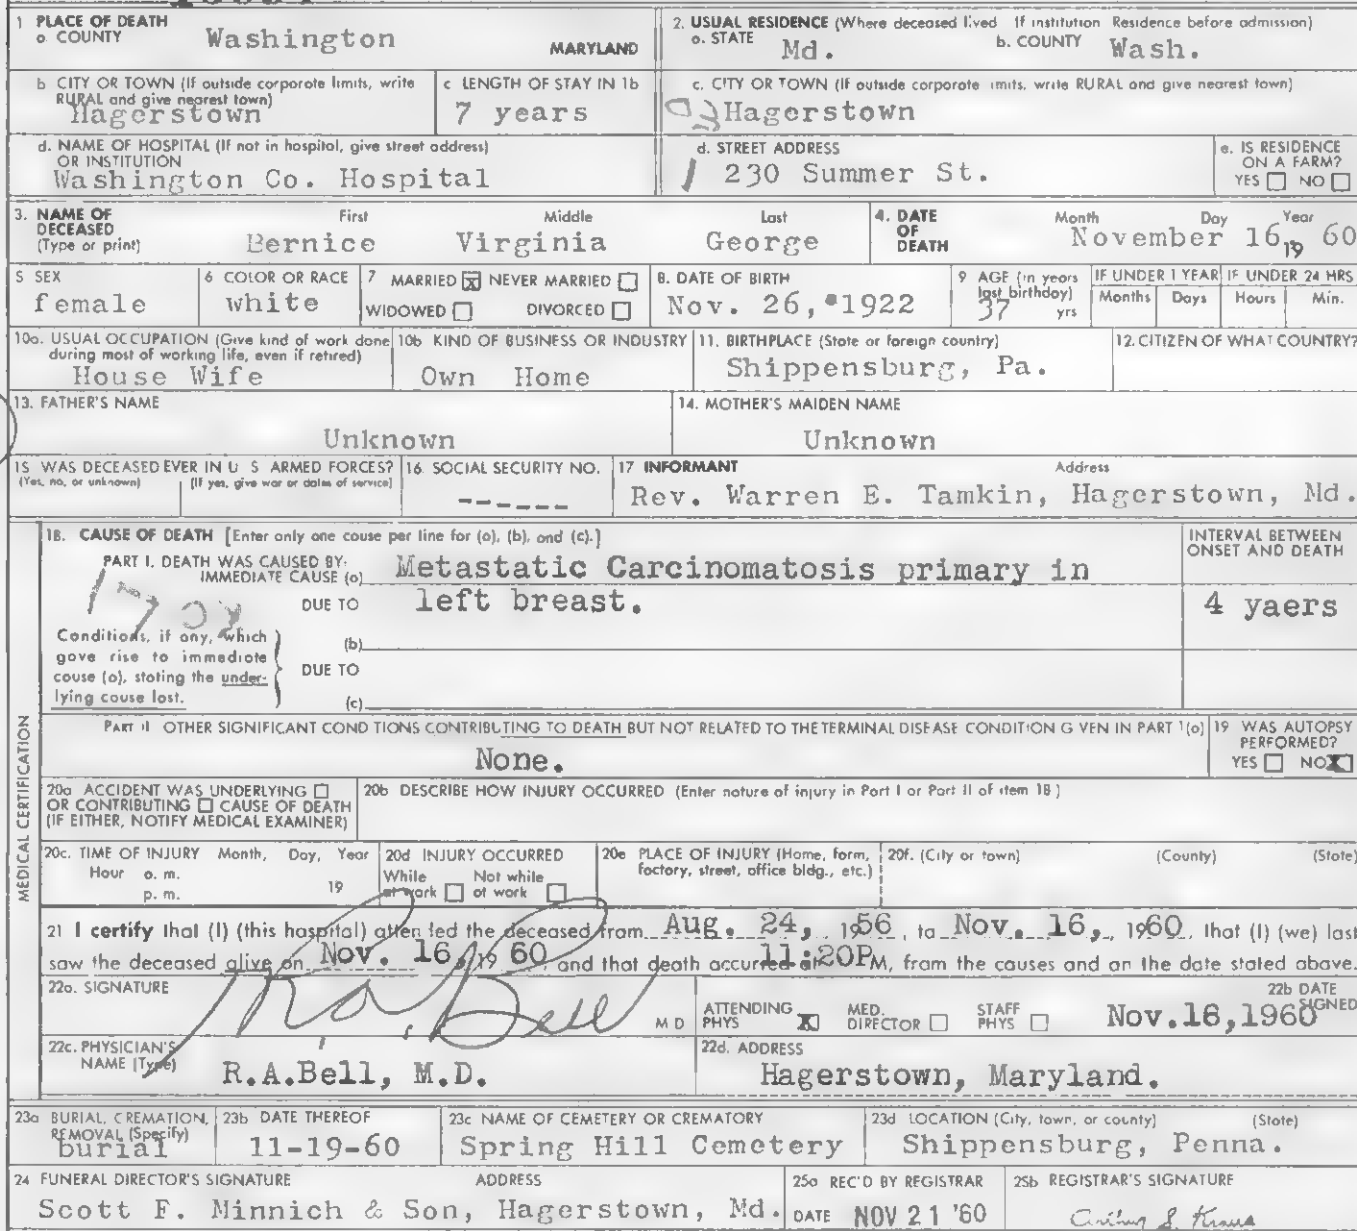 1 PLACE OF DEATH
a. COUNTY Washington MARYLAND
2. USUAL RESIDENCE (Where deceased lived If institution Residence before admission)
a. STATE Md. b. COUNTY Wash.
b CITY OR TOWN (If outside corporate limits, write RURAL and give nearest town)
Hagerstown
c LENGTH OF STAY IN 1b
7 years
c. CITY OR TOWN (If outside corporate limits, write RURAL and give nearest town)
Hagerstown
d. NAME OF HOSPITAL (If not in hospital, give street address)
OR INSTITUTION
Washington Co. Hospital
d. STREET ADDRESS
230 Summer St.
e. IS RESIDENCE
ON A FARM?
YES NO
3. NAME OF
DECEASED
(Type or print)
First Middle Last
Bernice Virginia George
4. DATE
OF
DEATH
Month Day Year
November 16, 19 60
5 SEX
female
6 COLOR OR RACE
white
7 MARRIED X NEVER MARRIED
WIDOWED DIVORCED
8. DATE OF BIRTH
Nov. 26, 1922
9 AGE (in years
last birthday)
37 yrs
IF UNDER 1 YEAR IF UNDER 24 HRS
Months Days Hours Min.
10a. USUAL OCCUPATION (Give kind of work done
during most of working life, even if retired)
House Wife
10b KIND OF BUSINESS OR INDUSTRY
Own Home
11. BIRTHPLACE (State or foreign country)
Shippensburg, Pa.
12. CITIZEN OF WHAT COUNTRY?
13. FATHER'S NAME
Unknown
14. MOTHER'S MAIDEN NAME
Unknown
15 WAS DECEASED EVER IN U S ARMED FORCES?
(Yes, no, or unknown) (If yes, give war or dates of service)
16. SOCIAL SECURITY NO.
------
17 INFORMANT Address
Rev. Warren E. Tamkin, Hagerstown, Md.
MEDICAL CERTIFICATION
18. CAUSE OF DEATH [Enter only one cause per line for (a), (b), and (c).]
INTERVAL BETWEEN
ONSET AND DEATH
PART I. DEATH WAS CAUSED BY:
IMMEDIATE CAUSE (a) Metastatic Carcinomatosis primary in
DUE TO left breast.
4 yaers
Conditions, if any, which
gave rise to immediate
cause (a), stating the under-
lying cause last.
(b)
DUE TO
(c)
PART II OTHER SIGNIFICANT CONDITIONS CONTRIBUTING TO DEATH BUT NOT RELATED TO THE TERMINAL DISEASE CONDITION GIVEN IN PART I(a)
None.
19 WAS AUTOPSY
PERFORMED?
YES NO X
20a ACCIDENT WAS UNDERLYING
OR CONTRIBUTING CAUSE OF DEATH
(IF EITHER, NOTIFY MEDICAL EXAMINER)
20b DESCRIBE HOW INJURY OCCURRED (Enter nature of injury in Part I or Part II of item 18)
20c. TIME OF INJURY Month, Day, Year
Hour a. m.
p. m. 19
20d INJURY OCCURRED
While at work Not while at work
20e PLACE OF INJURY (Home, farm,
factory, street, office bldg., etc.)
20f. (City or town) (County) (State)
21 I certify that (I) (this hospital) attended the deceased from Aug. 24, 1956, to Nov. 16, 1960, that (I) (we) last
saw the deceased alive on Nov. 16, 19 60, and that death occurred at 11:20P M, from the causes and on the date stated above.
22a. SIGNATURE
R.A. Bell M D
ATTENDING PHYS X MED. DIRECTOR STAFF PHYS
22b DATE SIGNED
Nov.16,1960
22c. PHYSICIAN'S
NAME (Type)
R.A.Bell, M.D.
22d. ADDRESS
Hagerstown, Maryland.
23a BURIAL, CREMATION,
REMOVAL (Specify)
burial
23b DATE THEREOF
11-19-60
23c NAME OF CEMETERY OR CREMATORY
Spring Hill Cemetery
23d LOCATION (City, town, or county) (State)
Shippensburg, Penna.
24 FUNERAL DIRECTOR'S SIGNATURE ADDRESS
Scott F. Minnich & Son, Hagerstown, Md.
25a REC'D BY REGISTRAR
DATE NOV 21 '60
25b REGISTRAR'S SIGNATURE